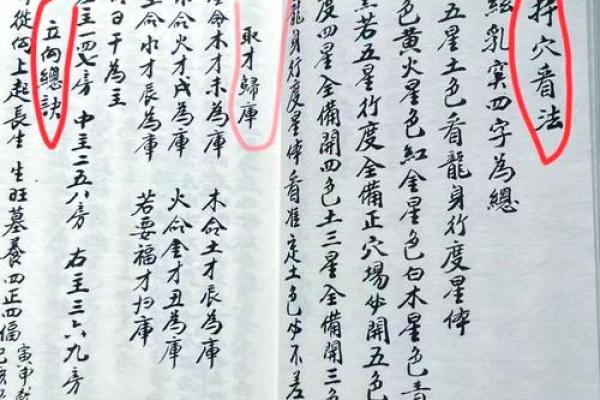 扦穴看法
乳窩四字為總
五星土色看龍身行度星体
色黄火星色紅金星色白木星色青
黑若五星行度全備正穴場必開五色
度四星全備開四色土三星全備開三色
龍身行度星体看准定土色必不差
取才歸庫
命木才未為庫 木命土才辰為庫
命火才戌為庫 火命金才丑為庫
土命水才辰為庫 若要福才归庫
日干為主
主一四七房 中主二五八房 右主三六九房
立向總訣
從向上起長生 生旺墓養四正四偏 寅申